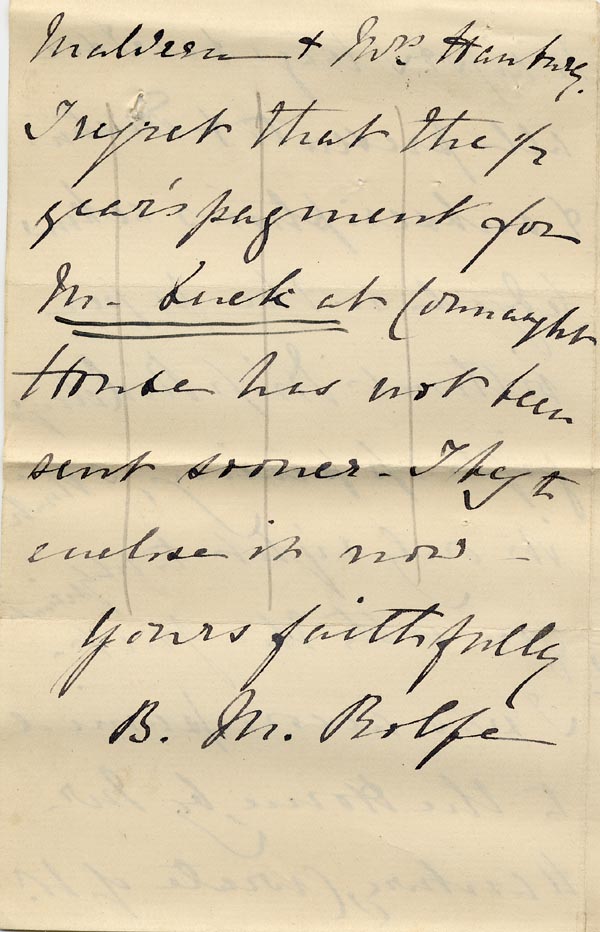 Malvern & Mrs Hanbury.
I regret that the ½
year's payment for
Mr Luck at Connaught
House has not been
sent sooner - I beg to
enclose it now -
Yours faithfully
B. M. Rolfe